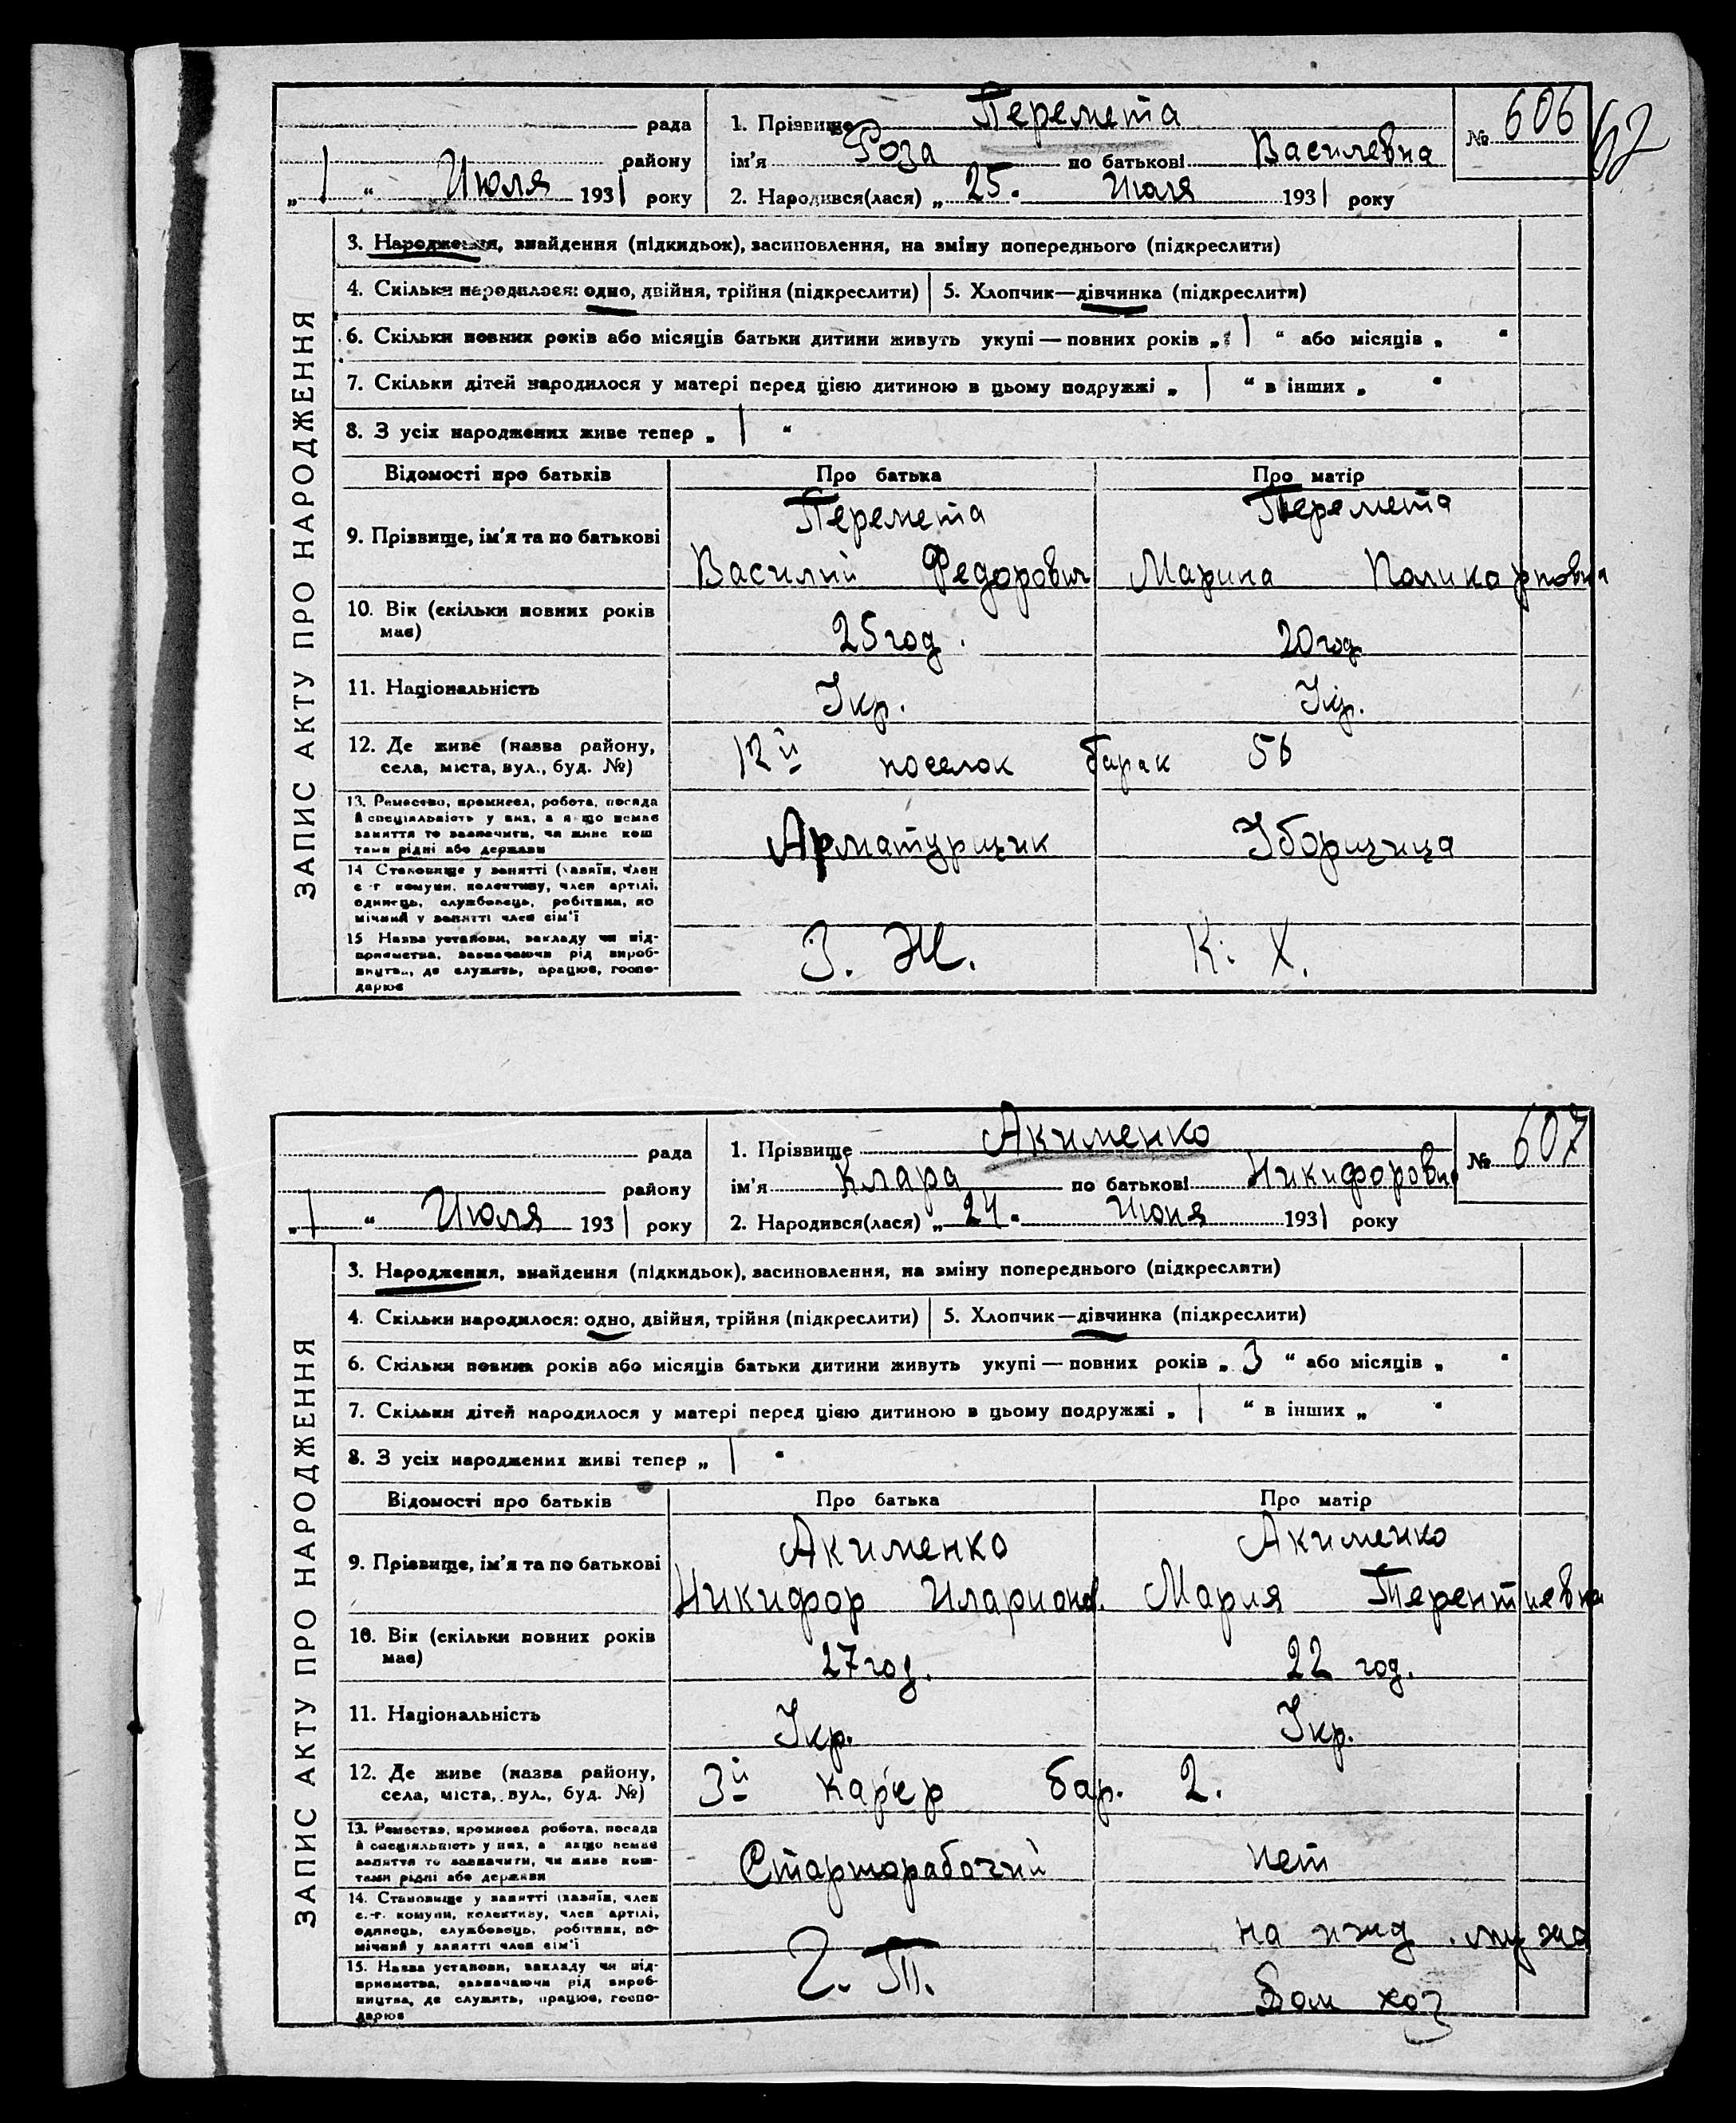 рада
району
„ 1 “ Июля 1931 року
1. Прізвище Перемета
ім'я Роза по батькові Василевна
2. Народився(лася) „ 25 “ Июля 1931 року
№ 606
62
ЗАПИС АКТУ ПРО НАРОДЖЕННЯ
3. Народження, знайдення (підкидьок), засиновлення, на зміну попереднього (підкреслити)
4. Скільки народилося: одно, двійня, трійня (підкреслити) 5. Хлопчик—дівчинка (підкреслити)
6. Скільки повних років або місяців батьки дитини живуть укупі — повних років „ 1 “ або місяців „ “
7. Скільки дітей народилося у матері перед цією дитиною в цьому подружжі „ 1 “ в інших „ “
8. З усіх народжених живе тепер „ 1 “
Відомості про батьків Про батька Про матір
9. Прізвище, ім'я та по батькові
Перемета Перемета
Василий Федорович Марина Поликарповна
10. Вік (скільки повних років має)
25 год. 20 год
11. Національність
Укр. Укр.
12. Де живе (назва району,
села, міста, вул., буд. №)
12й поселок барак 56
13. Ремество, промисел, робота, посада
й спеціяльність у них, а якщо немає
заняття то зазначити, чи живе кош
тами рідні або держави
Арматурщик Уборщица
14 Становище у занятті (хазяїн, член
с.-г комуни, колективу, член артілі,
одинець, службовець, робітник, по
мічний у занятті член сім'ї
15 Назва установи, закладу чи під-
приємства, зазначаючи рід вироб-
ництва, де служить, працює, госпо-
дарює
З. Ж. К. Х.
рада
району
„ 1 “ Июля 1931 року
1. Прізвище Акименко
ім'я Клара по батькові Никифоровн
2. Народився(лася) „ 24 “ Июня 1931 року
№ 607
ЗАПИС АКТУ ПРО НАРОДЖЕННЯ
3. Народження, знайдення (підкидьок), засиновлення, на зміну попереднього (підкреслити)
4. Скільки народилося: одно, двійня, трійня (підкреслити) 5. Хлопчик—дівчинка (підкреслити)
6. Скільки повних років або місяців батьки дитини живуть укупі — повних років „ 3 “ або місяців „ “
7. Скільки дітей народилося у матері перед цією дитиною в цьому подружжі „ 1 “ в інших „ “
8. З усіх народжених живі тепер „ 1 “
Відомості про батьків Про батька Про матір
9. Прізвище, ім'я та по батькові
Акименко Акименко
Никифор Иларионов. Мария Терентиевна
10. Вік (скільки повних років
має)
27 год. 22 год.
11. Національність
Укр. Укр.
12. Де живе (назва району,
села, міста, вул., буд. №)
3й карєр бар. 2.
13. Ремество, промисел робота, посада
й спеціяльність у них, а якщо немає
заняття то зазначити, чи живе кош-
тами рідні або держави
Старшорабочий нет
14. Становище у занятті (хазяїн, член
с.-г. комуни, колективу, член артілі,
одинець, службовець, робітник, по-
мічний у занятті член сім'ї
на ижд. мужа
15. Назва установи, закладу чи під-
приємства, зазначаючи рід вироб-
ництва, де служить, працює, госпо-
дарює
Г. Т. Дом хоз